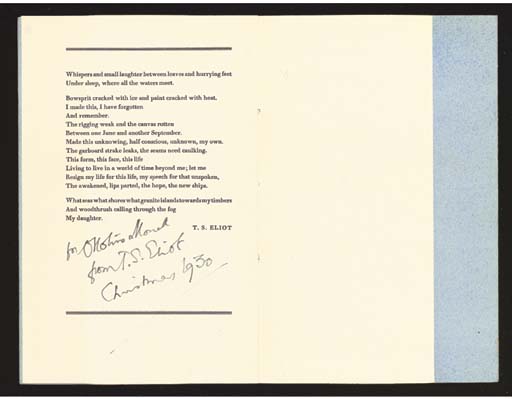 Whispers and small laughter between leaves and hurrying feet
Under sleep, where all the waters meet.
Bowsprit cracked with ice and paint cracked with heat.
I made this, I have forgotten
And remember.
The rigging weak and the canvas rotten
Between one June and another September.
Made this unknowing, half conscious, unknown, my own.
The garboard strake leaks, the seams need caulking.
This form, this face, this life
Living to live in a world of time beyond me; let me
Resign my life for this life, my speech for that unspoken,
The awakened, lips parted, the hope, the new ships.
What seas what shores what granite islands towards my timbers
And woodthrush calling through the fog
My daughter.
T. S. ELIOT
for Ottoline Morrell
from T. S. Eliot
Christmas 1930